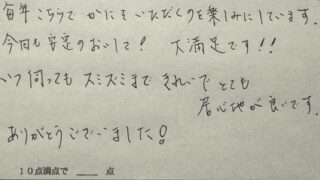 毎年こちらでかにをいただくのを楽しみにしています。
今回も安定のおいしさ! 大満足です!!
いつ伺ってもスミズミまできれいでとても
居心地が良いです。
ありがとうございました!
10点満点で ____ 点